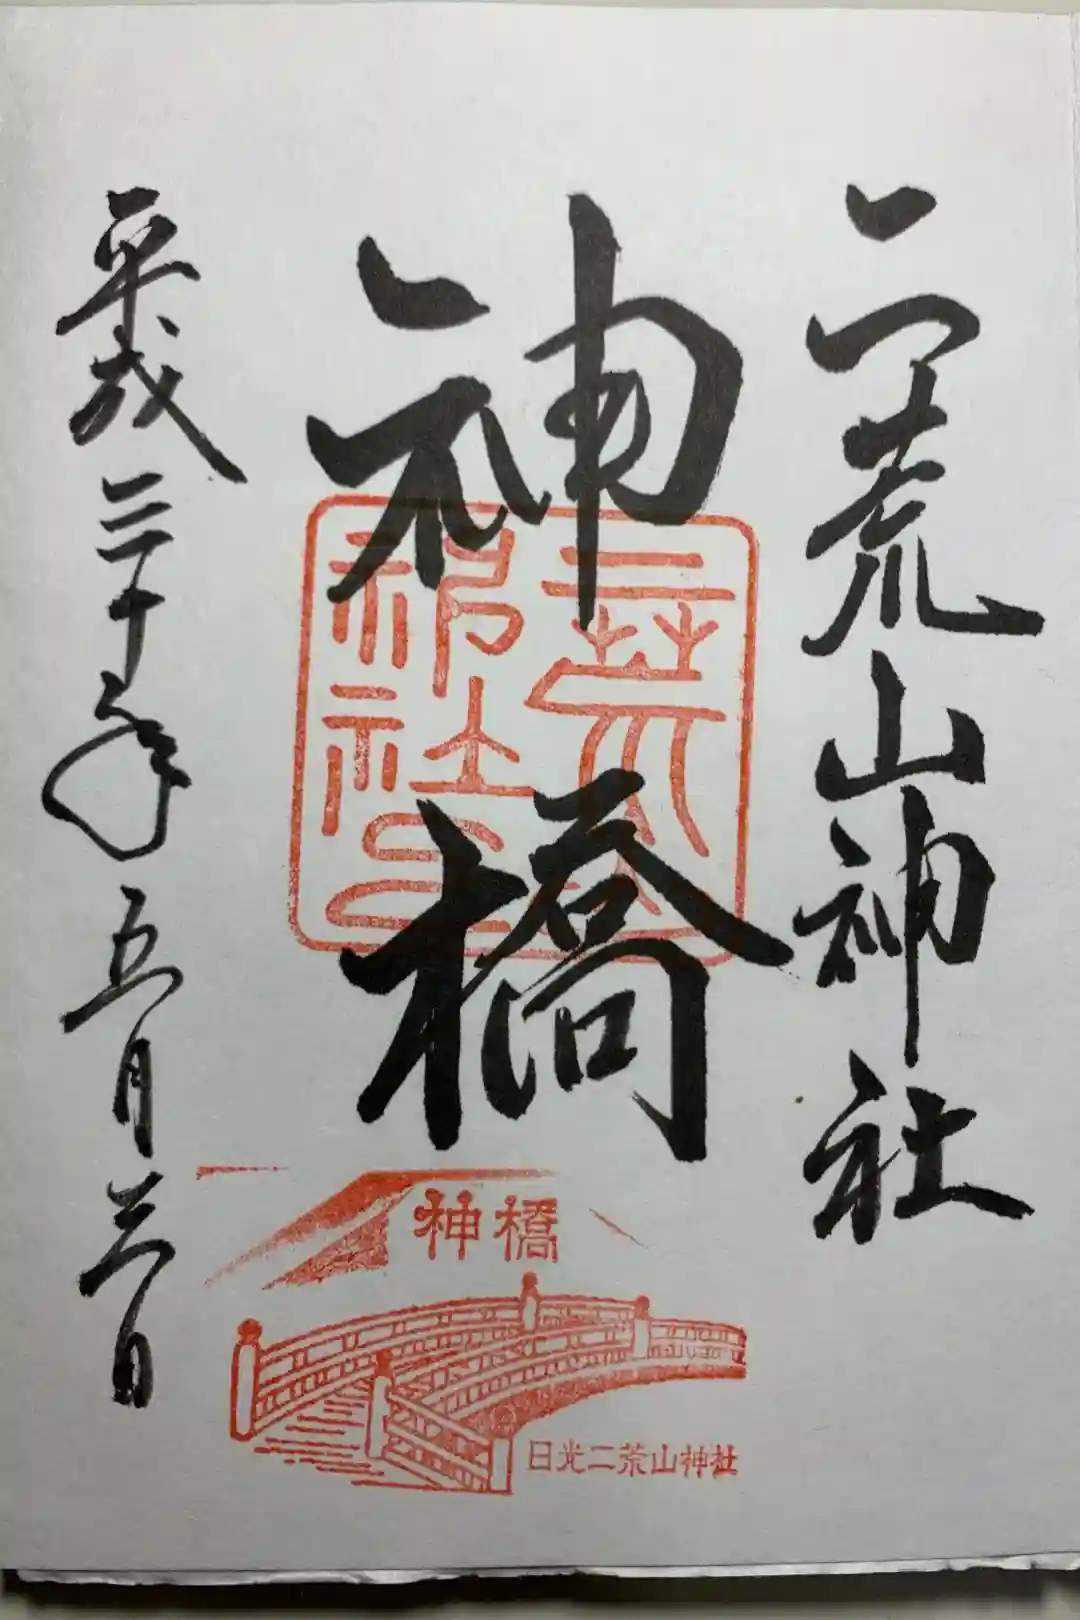 二荒山神社
神橋
平成三十年五月三日
二荒山神社
神橋
日光二荒山神社